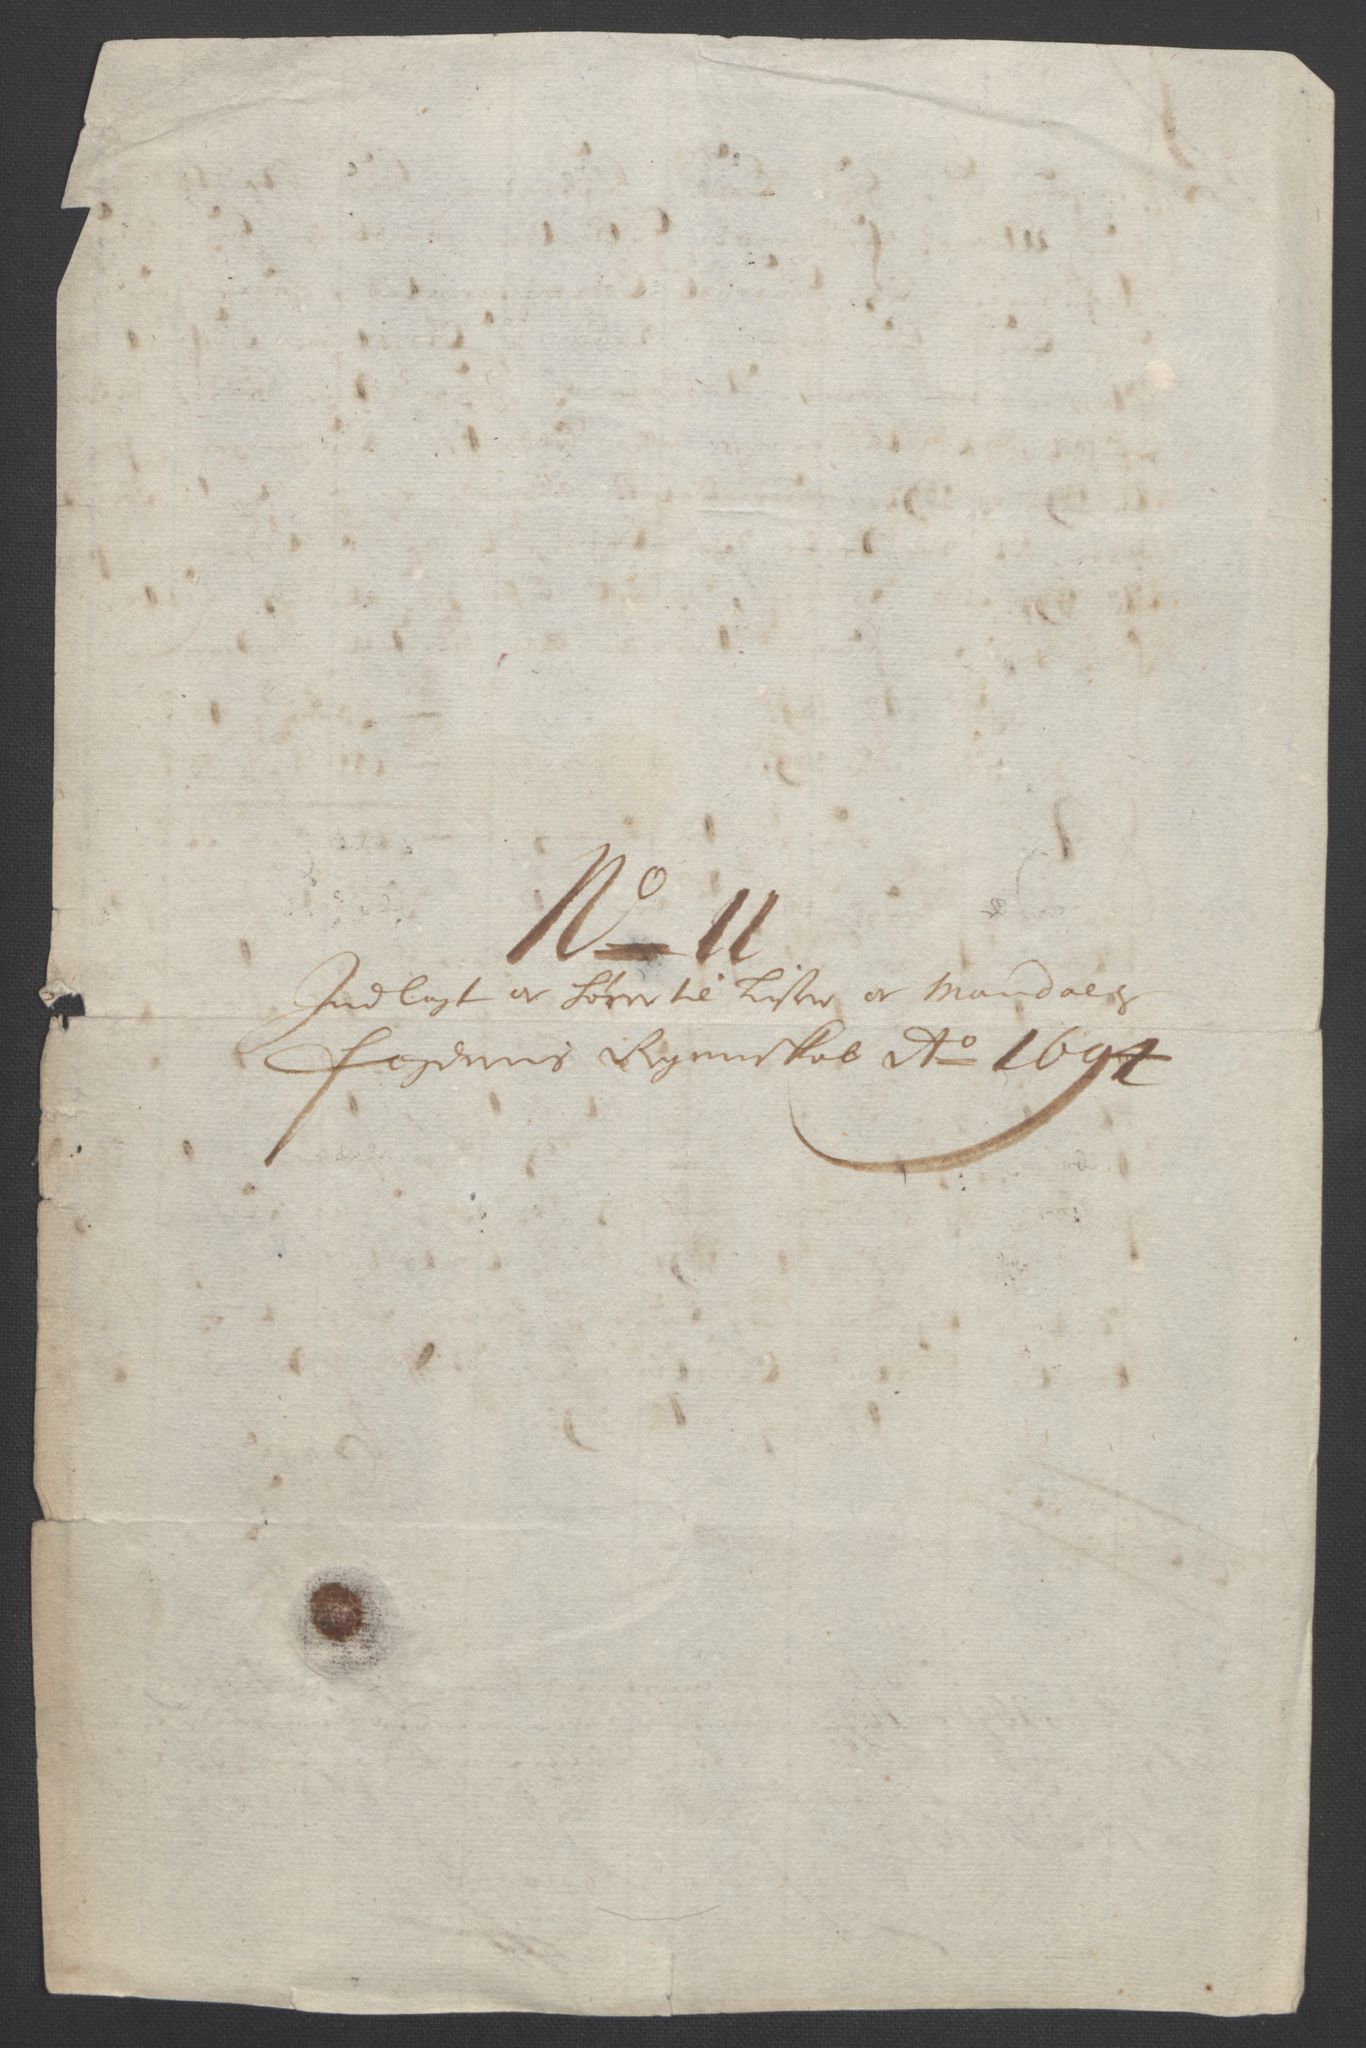 No 11
Indlagt og hører til Lister og Mandals
fogderis Regenskab Ao 1694